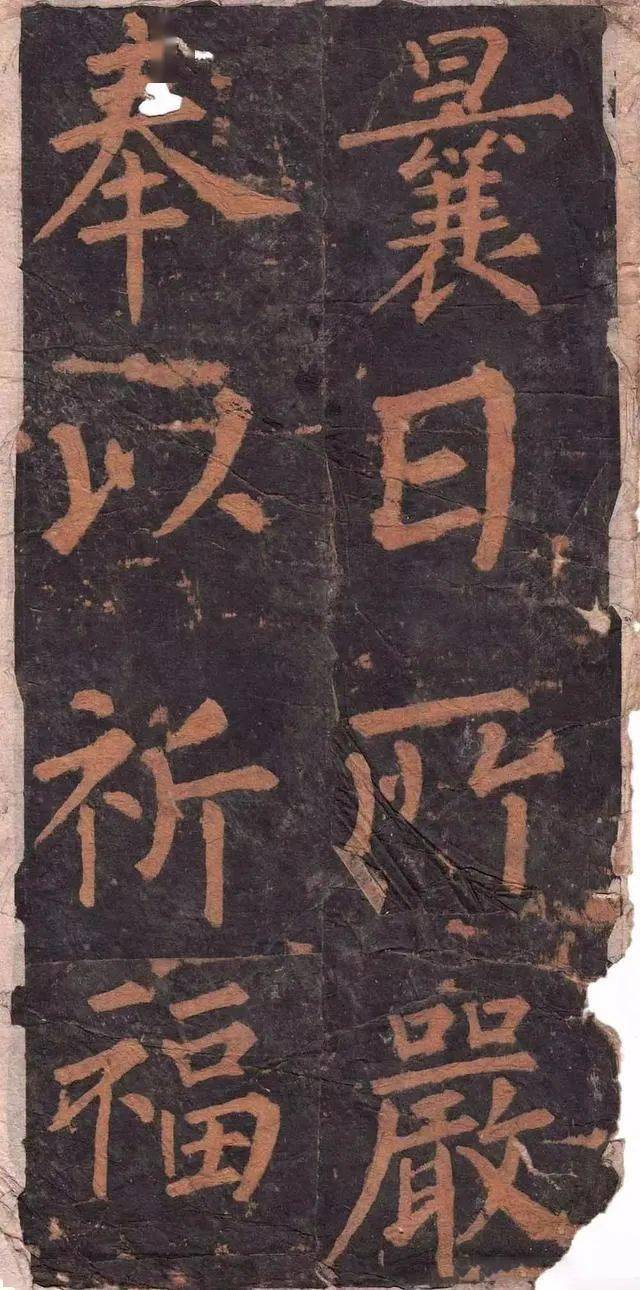 曩日所嚴
奉以祈福